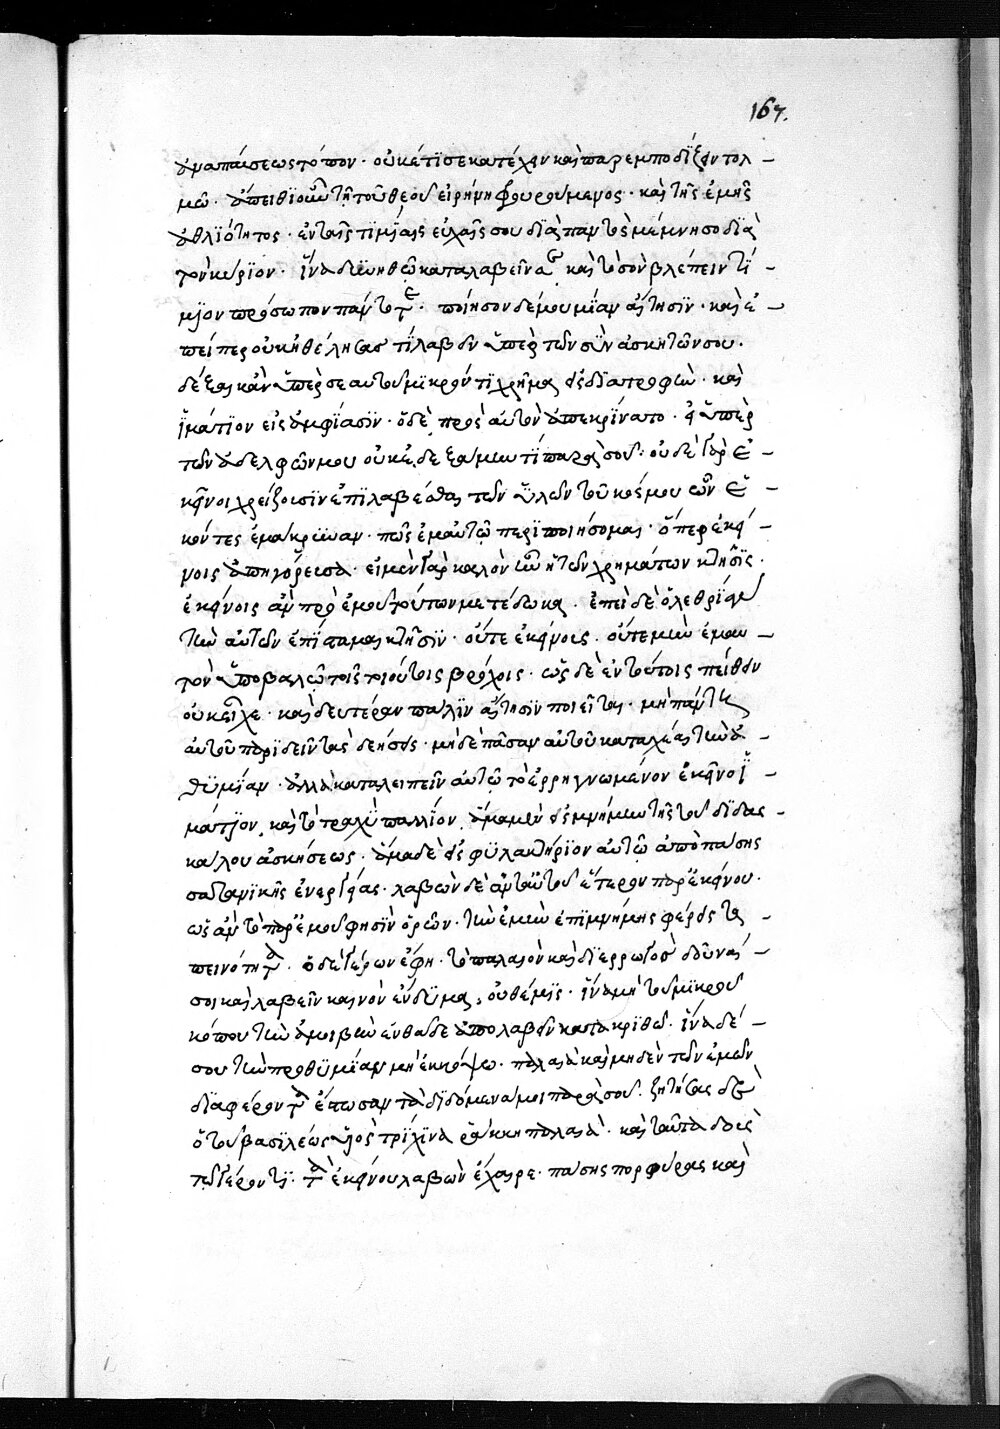 167.
ἀναπαύσεως τόπον· οὐκέτι σε κατέχειν καὶ παρεμποδίζειν τολ –
μῶ· ἄπειθι οὖν τῇ τοῦ θεοῦ εἰρήνῃ φρουρούμενος· καὶ τῆς ἐμῆς
ἀθλιότητος· ἐν ταῖς τιμίαις εὐχαῖς σου διὰ παντὸς μέμνησο διὰ
τὸν κύριον· ἵνα δυνηθῶ καταλαβεῖν σε καὶ τὸ σὸν βλέπειν τί –
μιον πρόσωπον πάντοτε· ποίησον δέ μου μίαν αἴτησιν· καὶ ἐ –
πείπερ οὐκ ἠθέλησας τὶ λαβεῖν ὑπὲρ τῶν συνασκητῶν σου·
δέξαι κἂν ὑπὲρ σεαυτοῦ μικρόν τι χρῆμα εἰς διατροφὴν· καὶ
ἱμάτιον εἰς ἀμφίασιν· ὁ δὲ πρὸς αὐτὸν ἀπεκρίνατο· εἰ ὑπὲρ
τῶν ἀδελφῶν μου οὐκ ἐδεξάμην τί παρὰ σοῦ· οὐδὲ γὰρ ἐ –
κεῖνοι χρήζουσιν ἐπιλαβέσθαι τῶν ὑλῶν τοῦ κόσμου ὧν ἑ –
κόντες ἐμακρύναν· πῶς ἐμαυτῷ περιποιήσομαι· ὅπερ ἐκεί –
νοις ἀπηγόρευσα· εἰ μὲν γὰρ καλὸν ἦν ἡ τῶν χρημάτων κτῆσις·
ἐκείνοις ἂν πρὸ ἐμοῦ τούτων μετέδωκα· ἐπεὶ δὲ ὀλεθρίαν
τὴν αὐτῶν ἐπίσταμαι κτῆσιν· οὔτε ἐκείνους· οὔτε μὴν ἐμαυ –
τὸν ὑποβαλῶ τοῖς τοιούτοις βρόχοις· ὡς δὲ ἐν τούτοις πείθειν
οὐκ εἶχε· καὶ δευτέραν πάλιν αἴτησιν ποιεῖται· μὴ πάντῃ
αὐτοῦ παριδεῖν τὰς δεήσεις· μηδὲ πᾶσαν αὐτοῦ καταχέαι τὴν ἀ –
θυμίαν· ἀλλὰ καταλειπεῖν αὐτῷ τὸ ἐρρηγνωμένον ἐκεῖνο ἱ –
μάτιον, καὶ τὸ τραχὺ παλλίον, ἅμα μὲν εἰς μνήμην τῆς τοῦ διδας –
κάλου ἀσκήσεως· ἅμα δὲ εἰς φυλακτήριον αὐτῷ ἀπὸ πάσης
σατανικῆς ἐνεργείας· λαβὼν δὲ ἀντ αὐτοῦ ἕτερον παρ ἐκείνου·
ὡς ἂν τὸ παρ ἐμοῦ φησὶν ὁρῶν· τὴν ἐμὴν ἐπὶ μνήμης φέροις τα –
πεινότητα· ὁ δὲ γέρων ἔφη· τὸ παλαιὸν καὶ διερρωγὸς δοῦναί –
σοι καὶ λαβεῖν καινὸν ἔνδυμα, οὐ θέμις· ἵνα μὴ τοῦ μικροῦ
κόπου τὴν ἀμοιβὴν ἐνθάδε ἀπολαβὼν κατακριθῶ· ἵνα δέ –
σου τὴν προθυμίαν μὴ ἐκκόψω· παλαιὰ καὶ μηδὲν τῶν ἐμῶν
διαφέροντα ἔστωσαν τὰ διδόμενά μοι παρὰ σοῦ· ζητήσας δὲ
ὁ τοῦ βασιλέως υἱὸς τρίχινα ῥάκκη παλαιὰ· καὶ ταῦτα δοὺς
τῷ γέροντι· τὰ ἐκείνου λαβὼν ἔχαιρε· πάσης πορφύρας καὶ